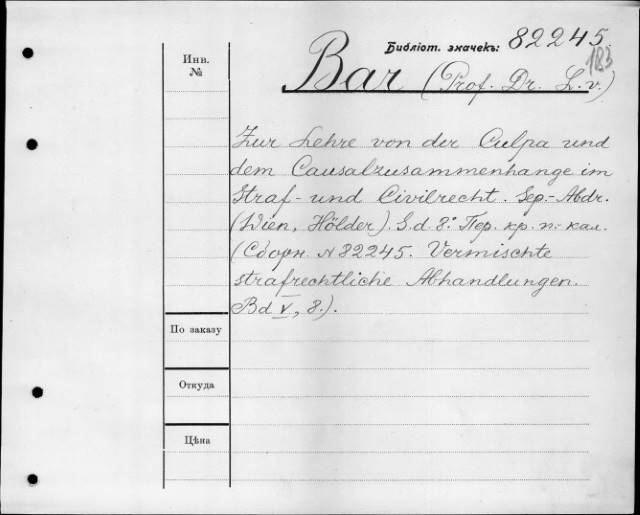 Библіот. значекъ: 82245
183
Инв.
№
Bar (Prof. Dr. L. v.)
Zur Lehre von der Culpa und
dem Causalzusammenhange im
Straf- und Civilrecht. Sep.-Abdr.
(Wien, Hölder). S. d. 8° Пер. кр. п.-кал.
(Сборн. № 82245. Vermischte
strafrechtliche Abhandlungen.
Bd V, 8.).
По заказу
Откуда
Цѣна